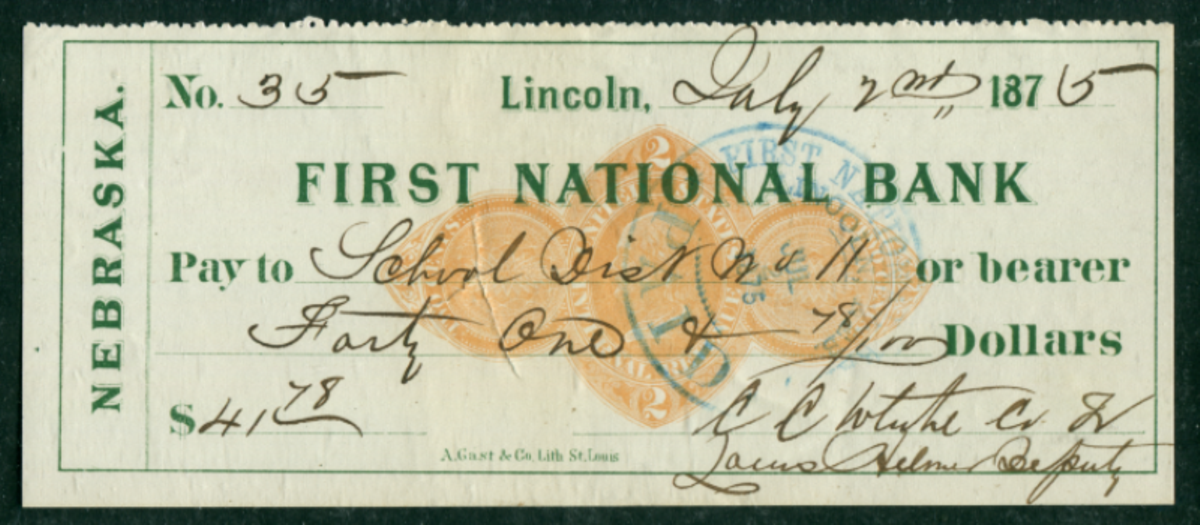 NEBRASKA.
No. 35 Lincoln, July 2nd 1875
FIRST NATIONAL BANK
Pay to School Dist No 11 or bearer
Forty One & 78/100 Dollars
$41 78
C C White Co. Tr
Louis Helmer Deputy
A. Gast & Co. Lith St. Louis
2
2
PAID
FIRST NAT
LINCOLN
JUL
75